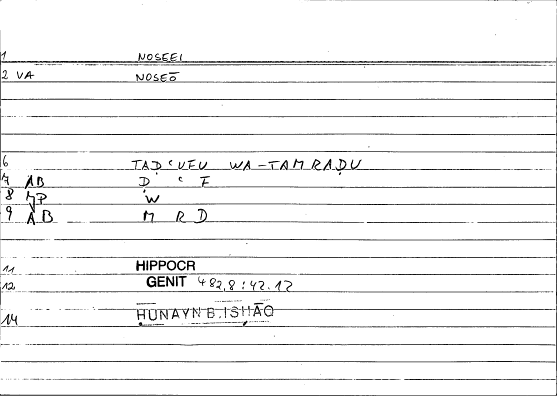 1 NOSEEI
2 VA NOSEŌ
6 TAḌʿUFU WA-TAMRAḌU
7 AB Ḍ ʿ F
8 JP W
9 AB M R Ḍ
11 HIPPOCR
12 GENIT 482,8:42.17
14 ḤUNAYN B. ISḤĀQ